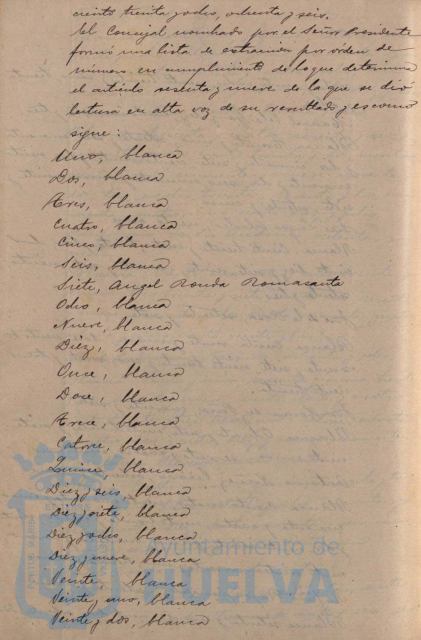 ciento treinta y ocho, ochenta y seis.
El Concejal nombrado por el Señor Presidente
formó una lista de extraccion por orden de
número en cumplimiento de lo que determina
el artículo sesenta y nueve de la que se dió
lectura en alta voz de su resultado y es como
sigue:
Uno, blanca
Dos, blanca
Tres, blanca
Cuatro, blanca
Cinco, blanca
Seis, blanca
Siete, Angel Ronda Romasanta
Ocho, blanca
Nueve, blanca
Diéz, blanca
Once, blanca
Doce, blanca
Trece, blanca
Catorce, blanca
Quince, blanca
Diez y seis, blanca
Diez y siete, blanca
Diez y ocho, blanca
Diez y nueve, blanca
Veinte, blanca
Veinte y uno, blanca
Veinte y dos, blanca
Ayuntamiento de
HUELVA